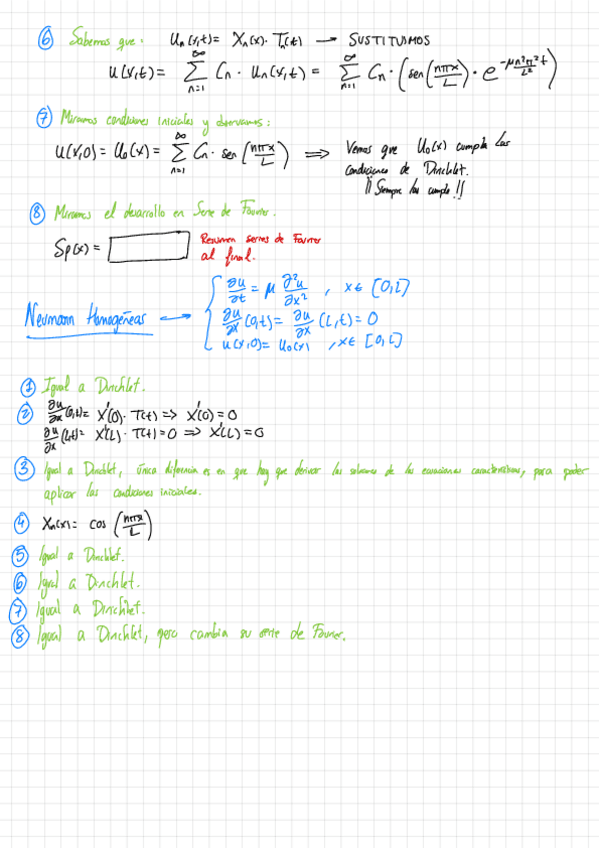 ⑥ Sabemos que: Uₙ(x,t) = Xₙ(x)·Tₙ(t) → SUSTITUIMOS
u(x,t) = ∑_{n=1}^{∞} Cₙ · Uₙ(x,t) = ∑_{n=1}^{∞} Cₙ · (sen(nπx/L) · e^{-μn²π²t/L²})
⑦ Miramos condiciones iniciales y observamos:
u(x,0) = U₀(x) = ∑_{n=1}^{∞} Cₙ · sen(nπx/L) ⟹ Vemos que U₀(x) cumpla las
condiciones de Dirichlet.
¡¡Siempre las cumple!!
⑧ Miramos el desarrollo en Serie de Fourier.
Sp(x) = Resumen series de Fourier
al final.
Neumann Homogéneas → { ∂u/∂t = μ ∂²u/∂x² , x ∈ [0,L]
∂u/∂x (0,t) = ∂u/∂x (L,t) = 0
u(x,0) = U₀(x) , x ∈ [0,L]
① Igual a Dirichlet.
② ∂u/∂x (0,t) = X'(0) · T(t) ⟹ X'(0) = 0
∂u/∂x (L,t) = X'(L) · T(t) = 0 ⟹ X'(L) = 0
③ Igual a Dirichlet, única diferencia es en que hay que derivar las soluciones de las ecuaciones características, para poder
aplicar las condiciones iniciales.
④ Xₙ(x) = cos (nπx/L)
⑤ Igual a Dirichlet.
⑥ Igual a Dirichlet.
⑦ Igual a Dirichlet.
⑧ Igual a Dirichlet, pero cambia su serie de Fourier.